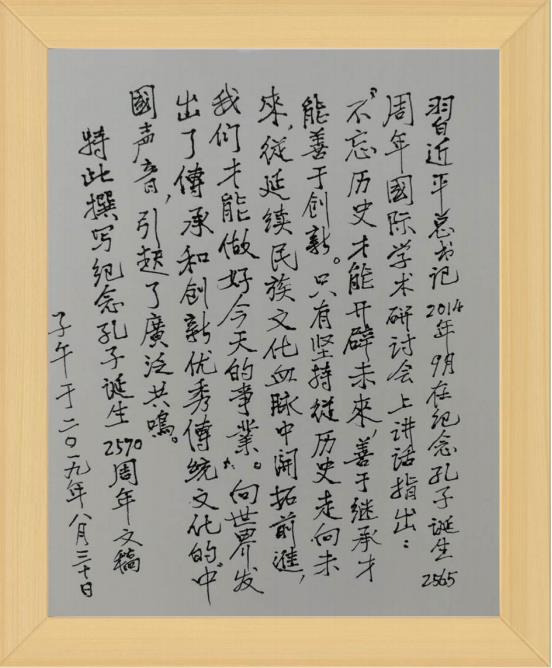 習近平总书记2014年9月在纪念孔子诞生2565
周年國际学术研讨会上讲话指出：
“不忘历史才能开辟未來，善于继承才
能善于创新。只有坚持從历史走向未
來，從延续民族文化血脉中開拓前進，
我们才能做好今天的事業”。向世界发
出了傳承和创新优秀傳统文化的“中
國声音”，引起了廣泛共鳴。
特此撰写纪念孔子诞生2570周年文稿
子午于二〇一九年八月三十日